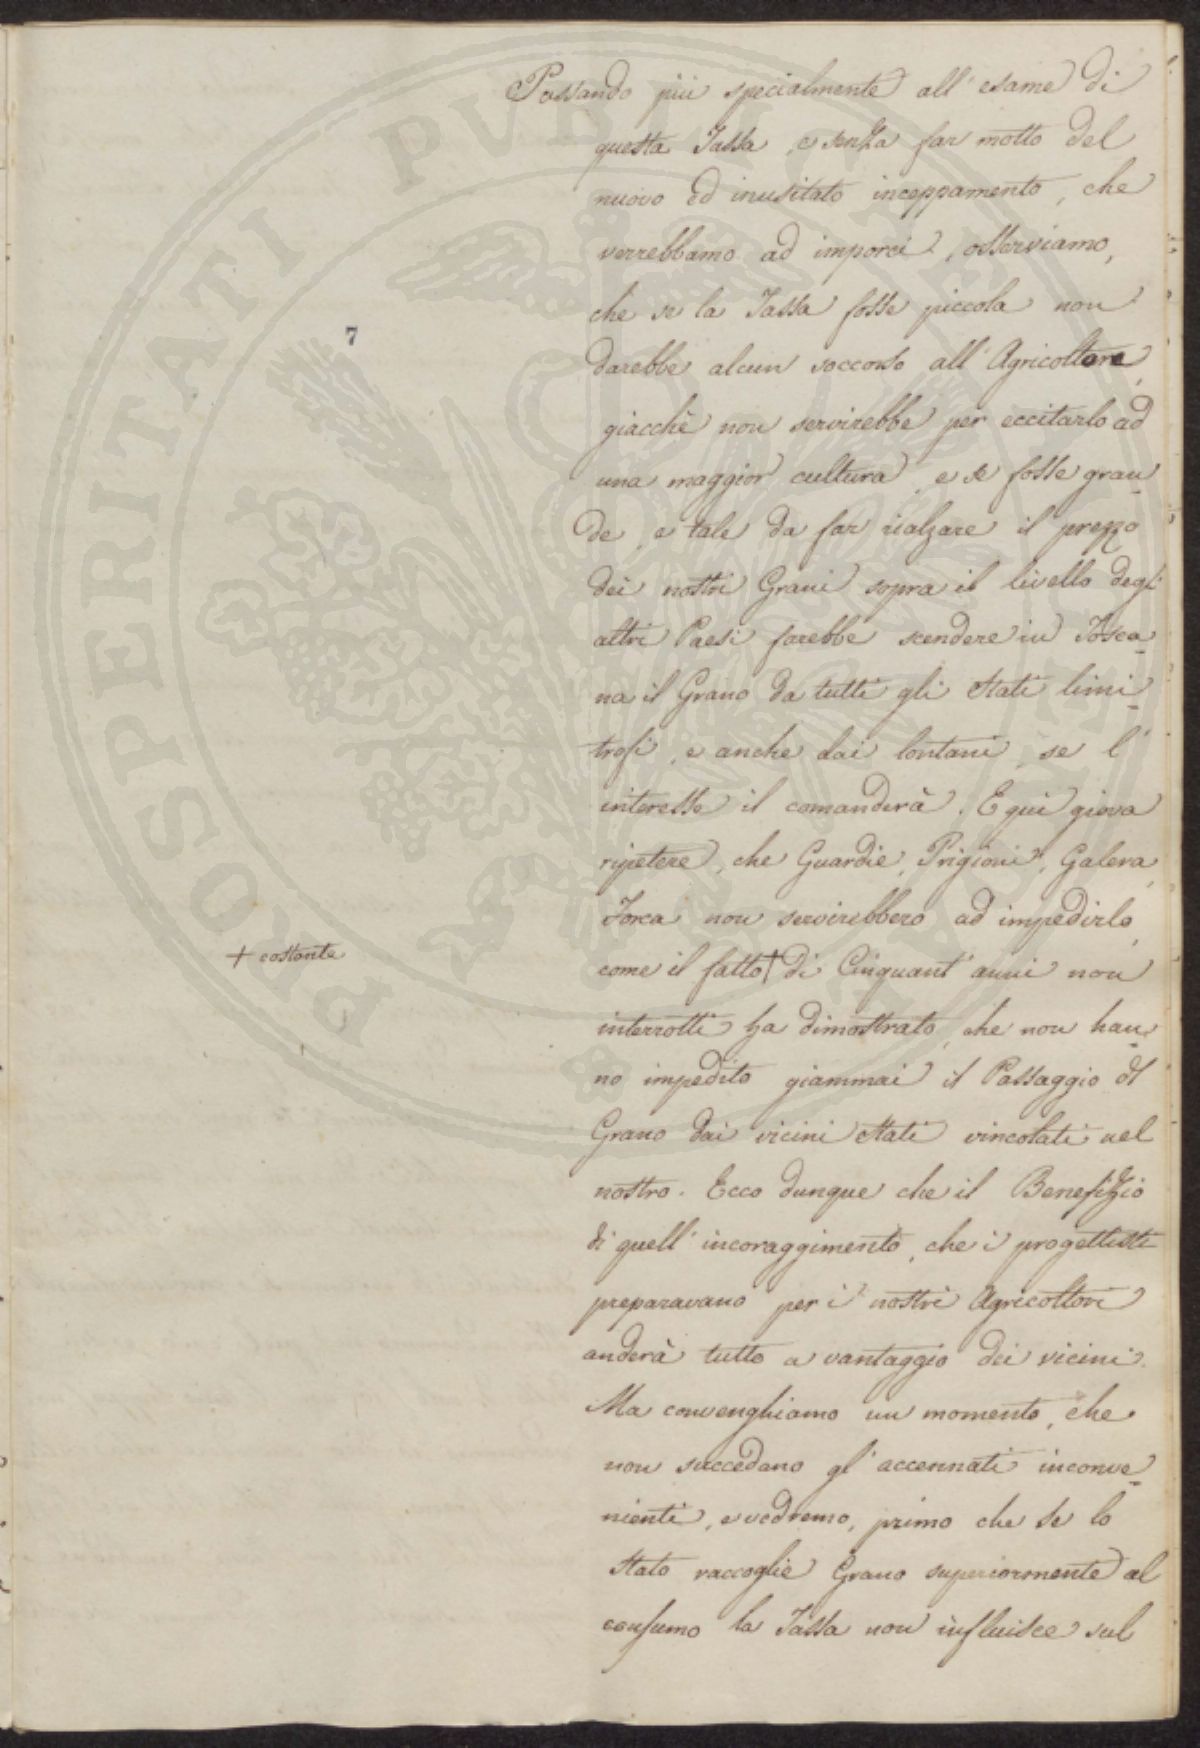 Passando più specialmente all'esame di
questa Tassa, e senza far motto del
nuovo ed inusitato inceppamento, che
verrebbamo ad imporci, osserviamo,
che se la Tassa fosse piccola non
7
darebbe alcun soccorso all'Agricoltore,
giacchè non servirebbe per eccitarlo ad
una maggior cultura, e se fosse gran-
de, e tale da far rialzare il prezzo
dei nostri Grani sopra il livello degli
altri Paesi farebbe scendere in Tosca-
na il Grano da tutti gli Stati limi-
trofi, e anche dai lontani, se l'
interesse il comanderà. E qui giova
ripetere, che Guardie, Prigioni, Galera,
Forca non servirebbero ad impedirlo,
+ costante
come il fatto + di Cinquant'anni non
interrotti ha dimostrato, che non han-
no impedito giammai il Passaggio del
Grano dai vicini Stati vincolati nel
nostro. Ecco dunque che il Benefizio
di quell'incoraggimento, che i progettisti
preparavano per i nostri Agricoltori
anderà tutto a vantaggio dei vicini.
Ma convenghiamo un momento, che
non succedano gl'accennati inconve-
nienti, e vedremo, primo che se lo
Stato raccoglie Grano superiormente al
consumo la Tassa non influisce sul
PROSPERITATI PUBLICAE